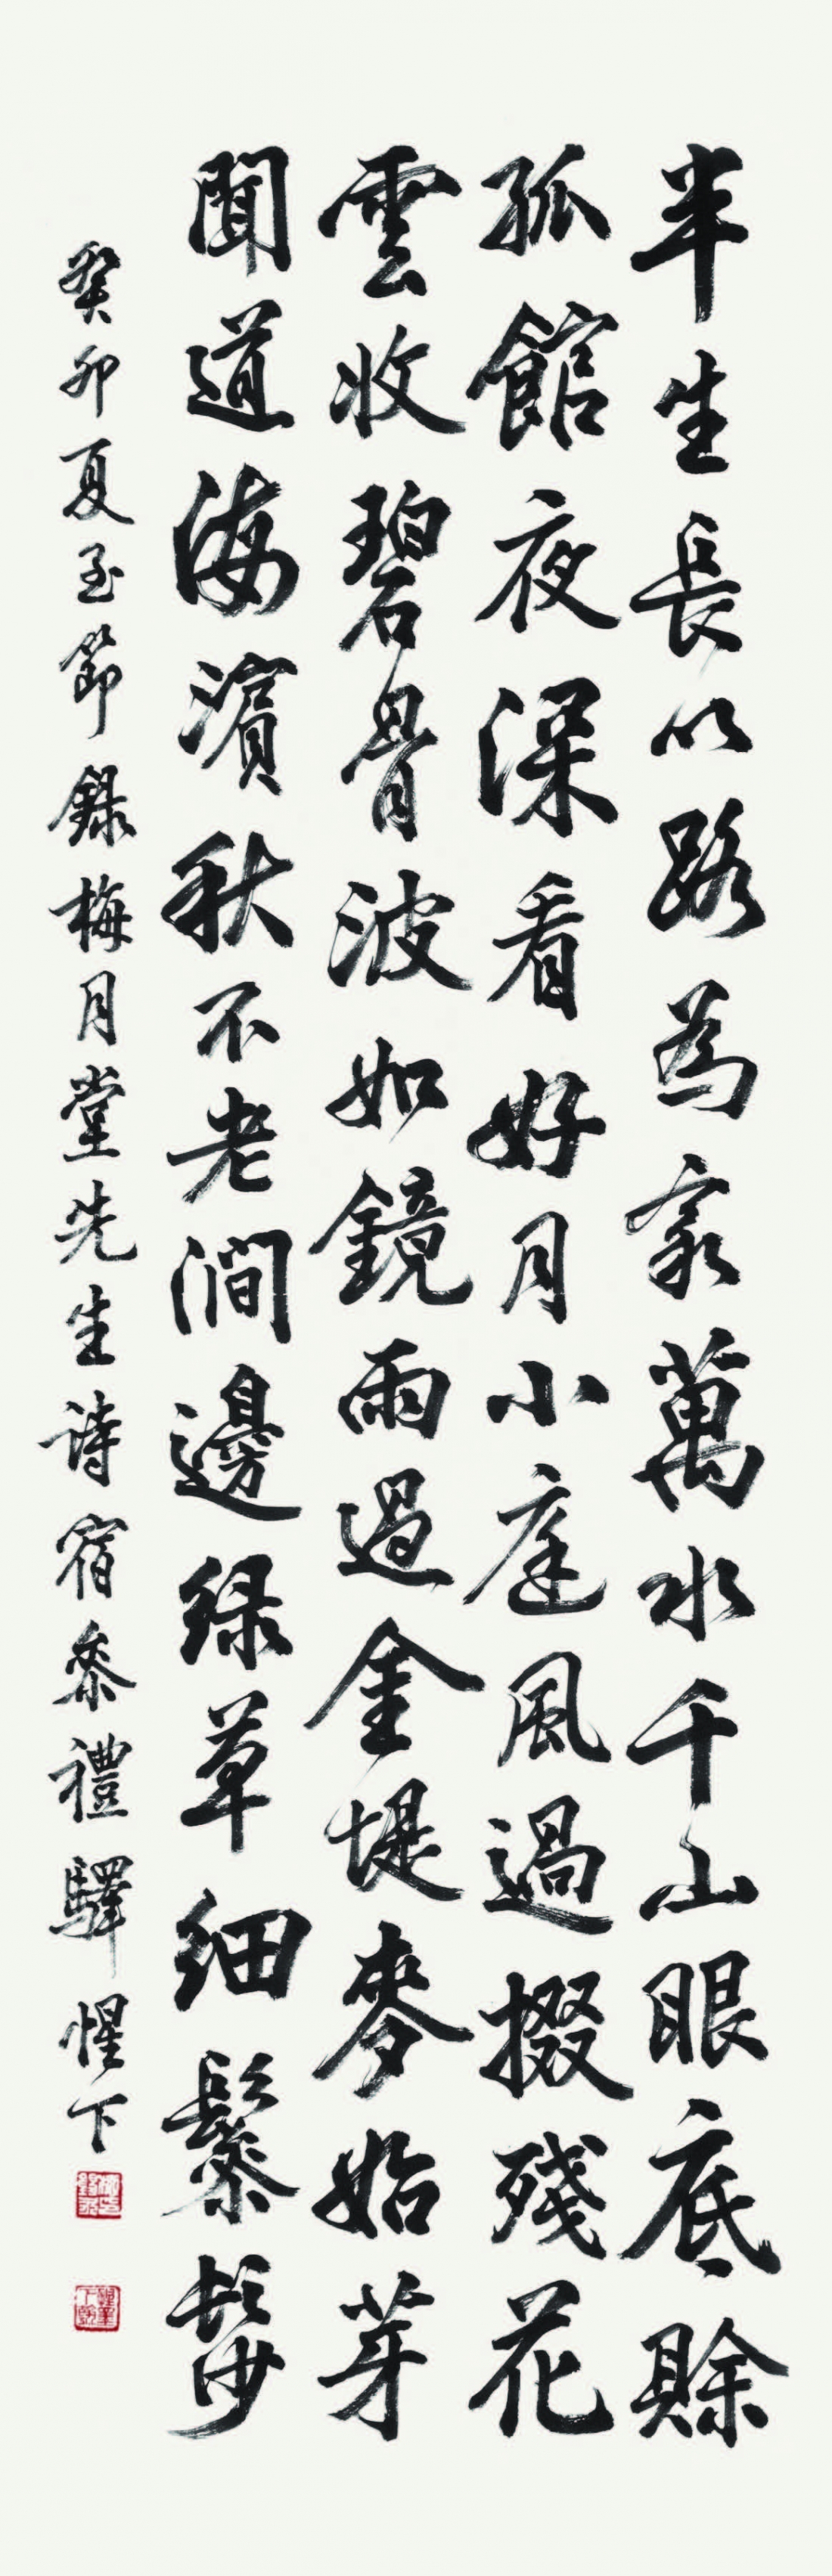 半生長以路為家萬水千山眼底賖
孤館夜深看好月小庭風過掇殘花
雲收碧骨波如鏡雨過金堤麥始芽
聞道海濱秋不老澗邊綠草細鬖髿
癸卯夏至節錄梅月堂先生詩宿泰禮驛 惺下